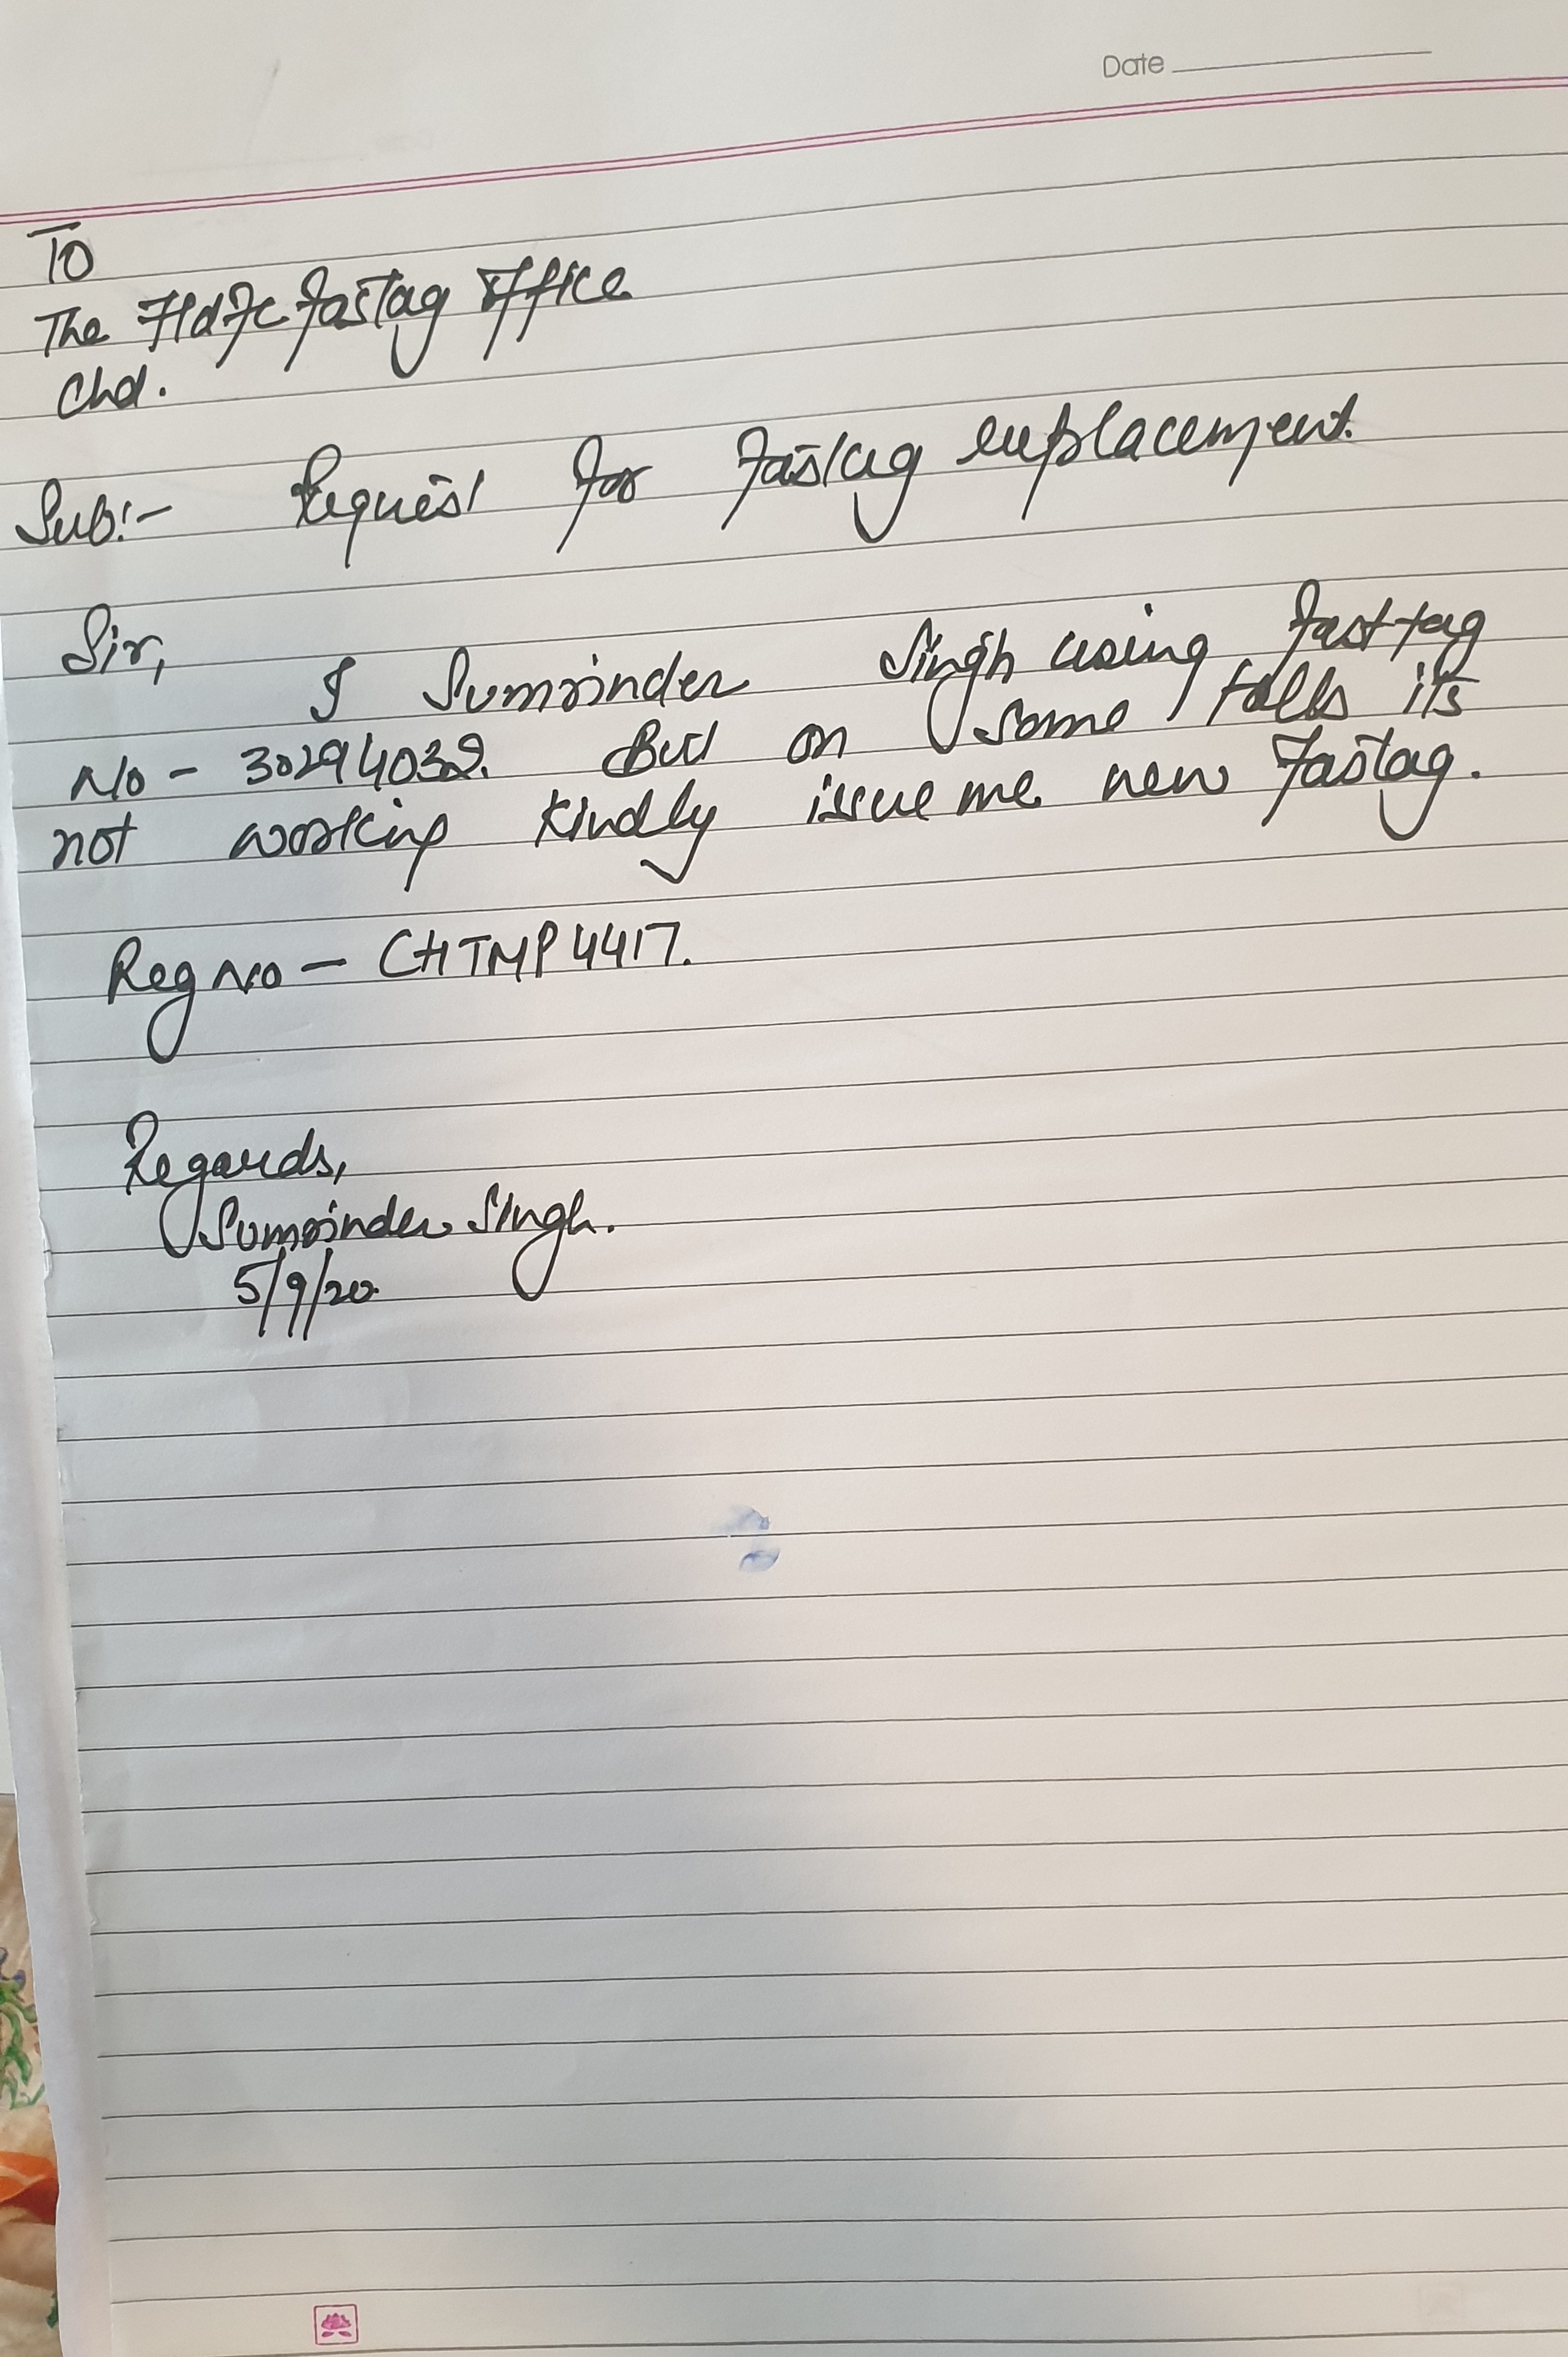 Date
To
The Hdfc fastag office
Chd.
Sub:- Request for fastag replacement.
Sir,
I Sumrinder Singh using fasttag
No - 30294032. But on some tolls its
not working kindly issue me new fastag.
Reg No - CHTMP4417.
Regards,
Sumrinder Singh.
5/9/20.